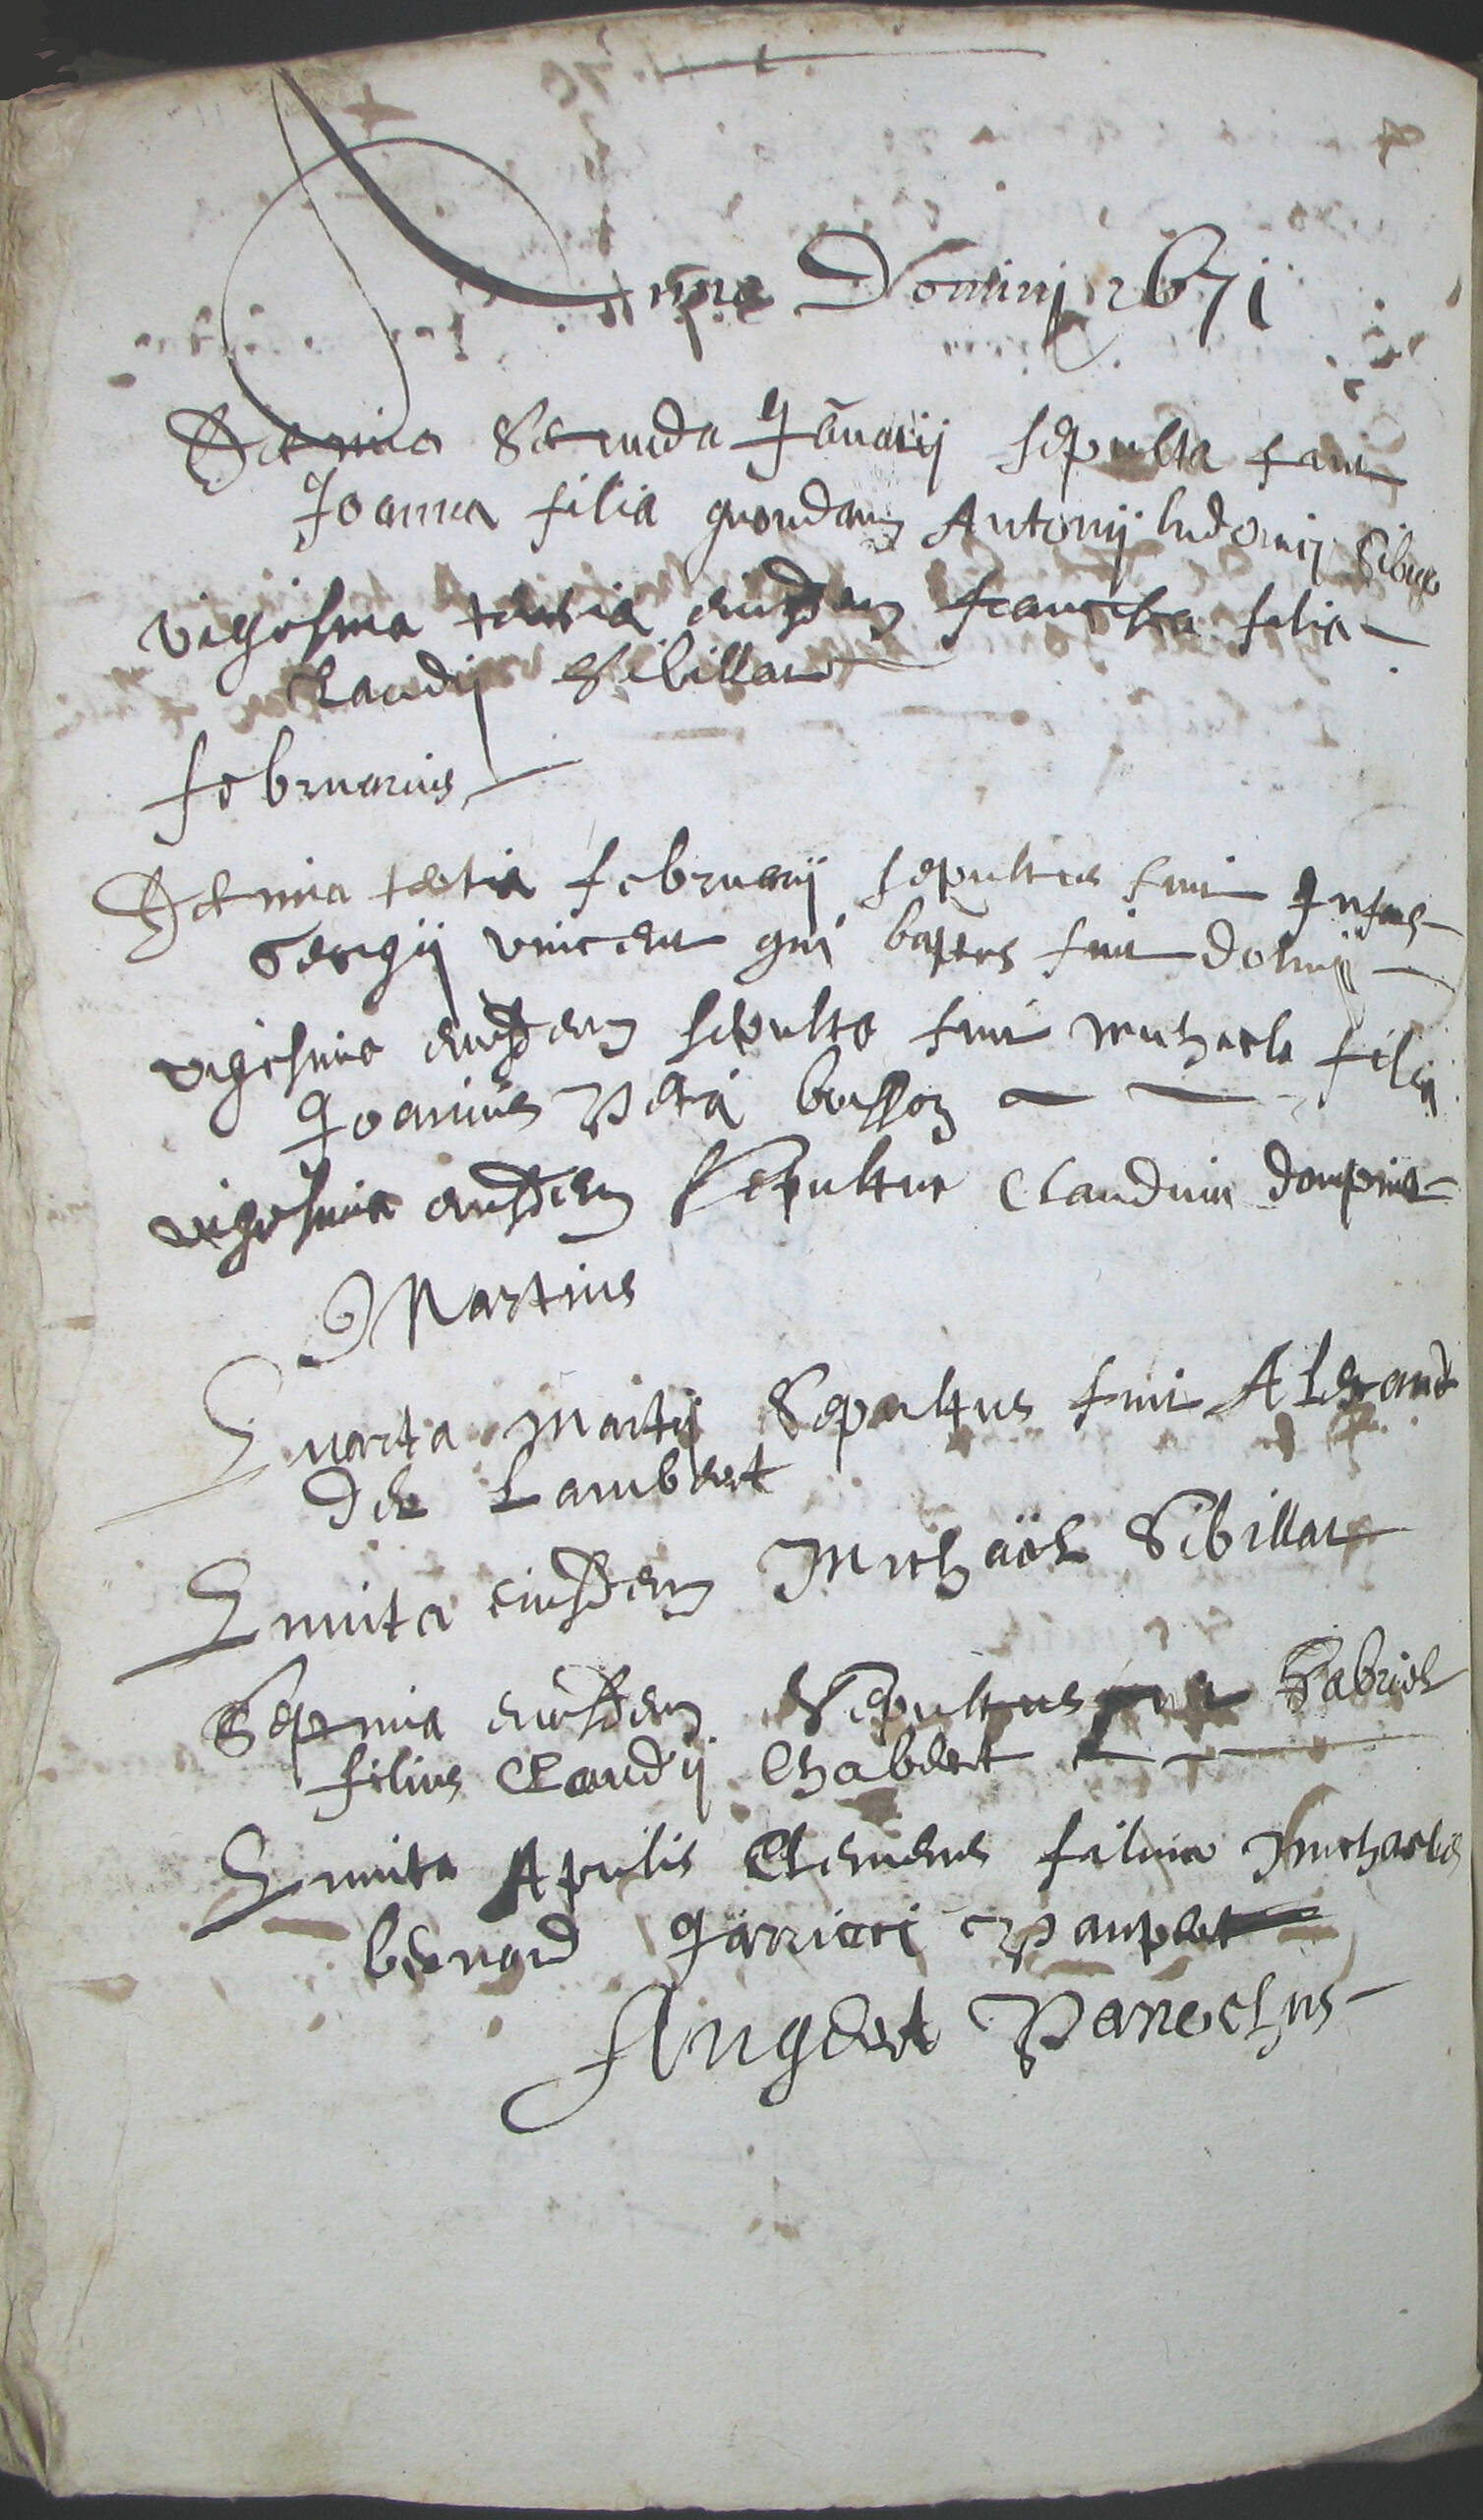 Anno Dominj 1671
Decima Secunda Januarij sepulta fuit
Joanna filia quondam Antonij ludovicj Sibue
vigesima tertia eiusdem francisca filia
Claudij Sibillat
februarius
Decima tertia februarij sepultus fuit Infans
Georgij vincent qui baptus fuit domij
vigesima eiusdem sepulta fuit michaela filia
Joannis Petri busson
vigesima eiusdem Sepultus Claudius
Martius
Quarta Martij Sepultus fuit Alexand
der Lambert
Quinta eiusdem Michäel Sibillat
Septima eiusdem Sepultus Gabriel
filius Claudij Chabert
Quinta Aprilis Clemens filius michaelis
bernard
Angdert Parrochus